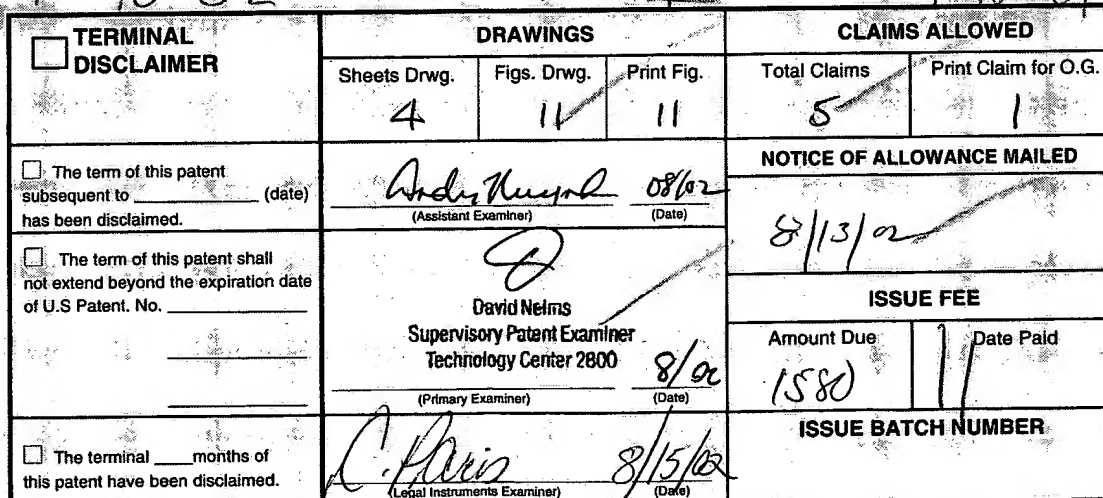 TERMINAL
DISCLAIMER
☐ The term of this patent
subsequent to ________ (date)
has been disclaimed.
☐ The term of this patent shall
not extend beyond the expiration date
of U.S Patent. No. ________
☐ The terminal ____months of
this patent have been disclaimed.
DRAWINGS
Sheets Drwg. Figs. Drwg. Print Fig.
4 11 11
Andy Huynh 08/02
(Assistant Examiner) (Date)
David Nelms
Supervisory Patent Examiner
Technology Center 2800 8/02
(Primary Examiner) (Date)
C. Paris 8/15/02
(Legal Instruments Examiner) (Date)
CLAIMS ALLOWED
Total Claims Print Claim for O.G.
5 1
NOTICE OF ALLOWANCE MAILED
8/13/02
ISSUE FEE
Amount Due Date Paid
1580
ISSUE BATCH NUMBER